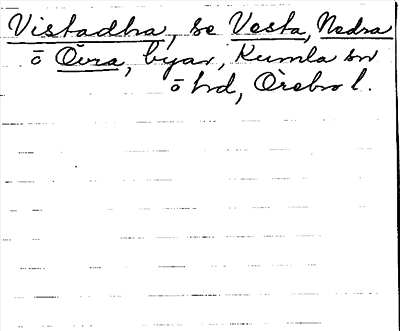 Vistadha, se Vesta, Nedra
ō Övra, byar, Kumla sn
ō hd, Örebro l.